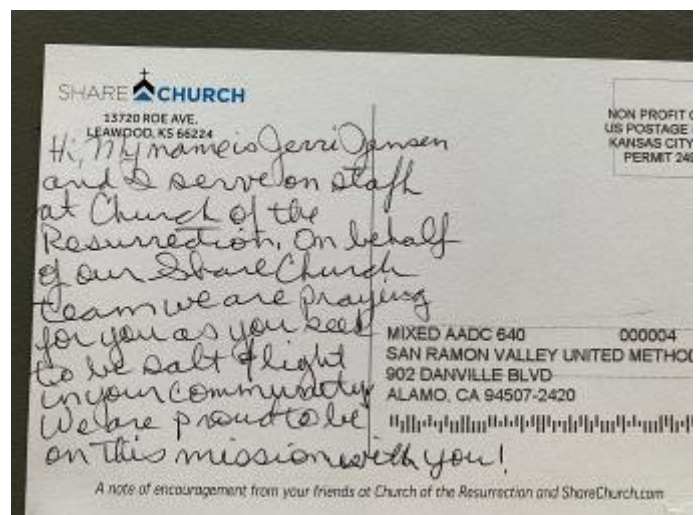 SHARE CHURCH
13720 ROE AVE.
LEAWOOD, KS 66224
NON PROFIT
US POSTAGE
KANSAS CITY
PERMIT
Hi, My name is Jerri Jansen
and I serve on staff
at Church of the
Resurrection. On behalf
of our ShareChurch
team we are praying
for you as you seek
to be salt & light
in your community
We are proud to be
on this mission with you!
MIXED AADC 640 000004
SAN RAMON VALLEY UNITED METHOD
902 DANVILLE BLVD
ALAMO, CA 94507-2420
A note of encouragement from your friends at Church of the Resurrection and ShareChurch.com